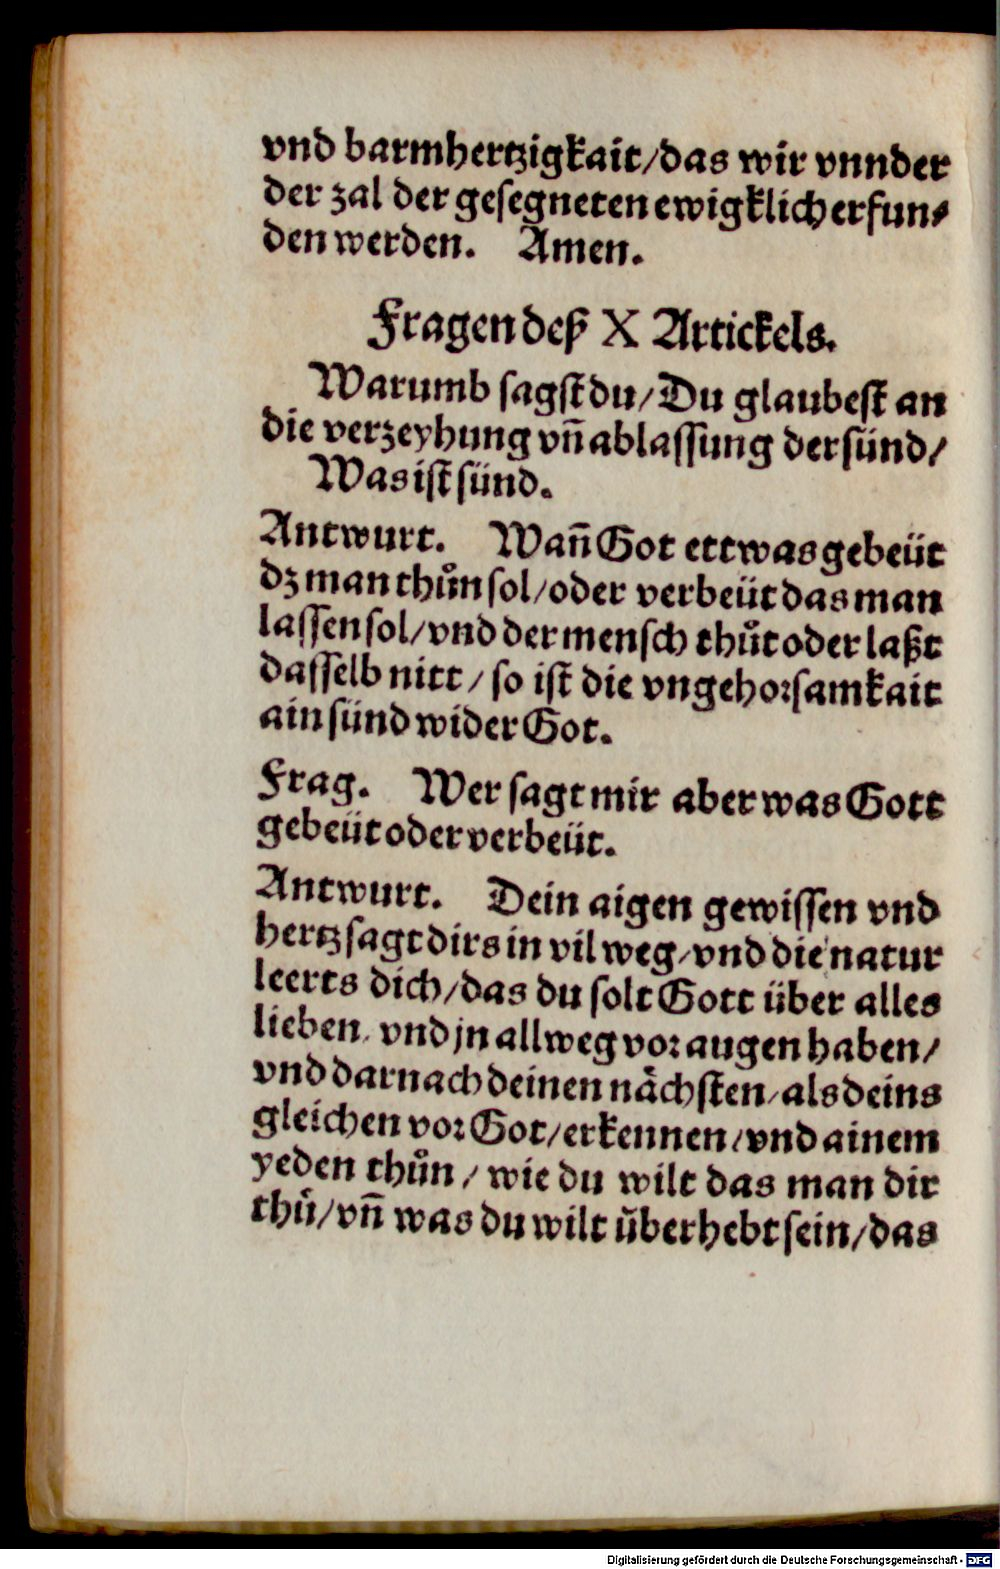 vnd barmhertzigkait/das wir vnnder
der zal der gesegneten ewigklich erfun⸗
den werden. Amen.
Fragen deß X Artickels.
Warumb sagst du/Du glaubest an
die verzeyhung vn̄ ablassung der sünd/
Was ist sünd.
Antwurt. Wan̄ Got ettwas gebeüt
dz man thůn sol/oder verbeüt das man
lassen sol/vnd der mensch thůt oder laßt
dasselb nitt/so ist die vngehorsamkait
ain sünd wider Got.
Frag. Wer sagt mir aber was Gott
gebeüt oder verbeüt.
Antwurt. Dein aigen gewissen vnd
hertz sagt dirs in vil weg/vnd die natur
leerts dich/das du solt Gott über alles
lieben/vnd jn allweg vor augen haben/
vnd darnach deinen nächsten/als deins
gleichen vor Got/erkennen/vnd ainem
yeden thůn/wie du wilt das man dir
thů/vn̄ was du wilt überhebt sein/das
Digitalisierung gefördert durch die Deutsche Forschungsgemeinschaft - DFG